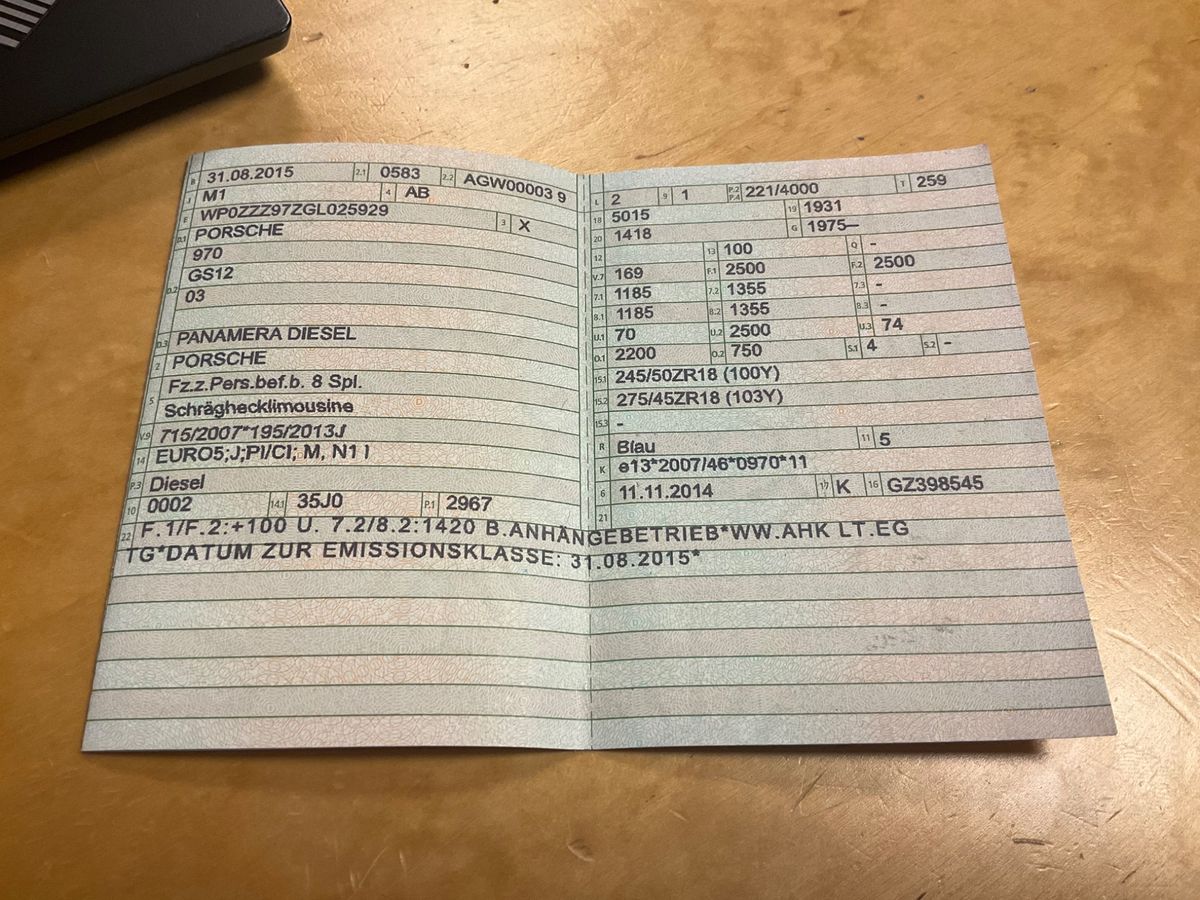 B 31.08.2015 2.1 0583 2.2 AGW00003 9
J M1 4 AB
E WP0ZZZ97ZGL025929 3 X
D.1 PORSCHE
970
D.2 GS12
03
D.3 PANAMERA DIESEL
2 PORSCHE
5 Fz.z.Pers.bef.b. 8 Spl.
Schräghecklimousine
V.9 715/2007*195/2013J
14 EURO5;J;PI/CI; M, N1 I
P.3 Diesel
10 0002 14.1 35J0 P.1 2967
L 2 9 1 P.2 P.4 221/4000 T 259
18 5015 19 1931
20 1418 G 1975–
12 13 100 Q -
V.7 169 F.1 2500 F.2 2500
7.1 1185 7.2 1355 7.3 -
8.1 1185 8.2 1355 8.3 -
U.1 70 U.2 2500 U.3 74
O.1 2200 O.2 750 S.1 4 S.2 -
15.1 245/50ZR18 (100Y)
15.2 275/45ZR18 (103Y)
15.3 -
R Blau 11 5
K e13*2007/46*0970*11
6 11.11.2014 17 K 16 GZ398545
21
22 F.1/F.2:+100 U. 7.2/8.2:1420 B.ANHÄNGEBETRIEB*WW.AHK LT.EG
TG*DATUM ZUR EMISSIONSKLASSE: 31.08.2015*